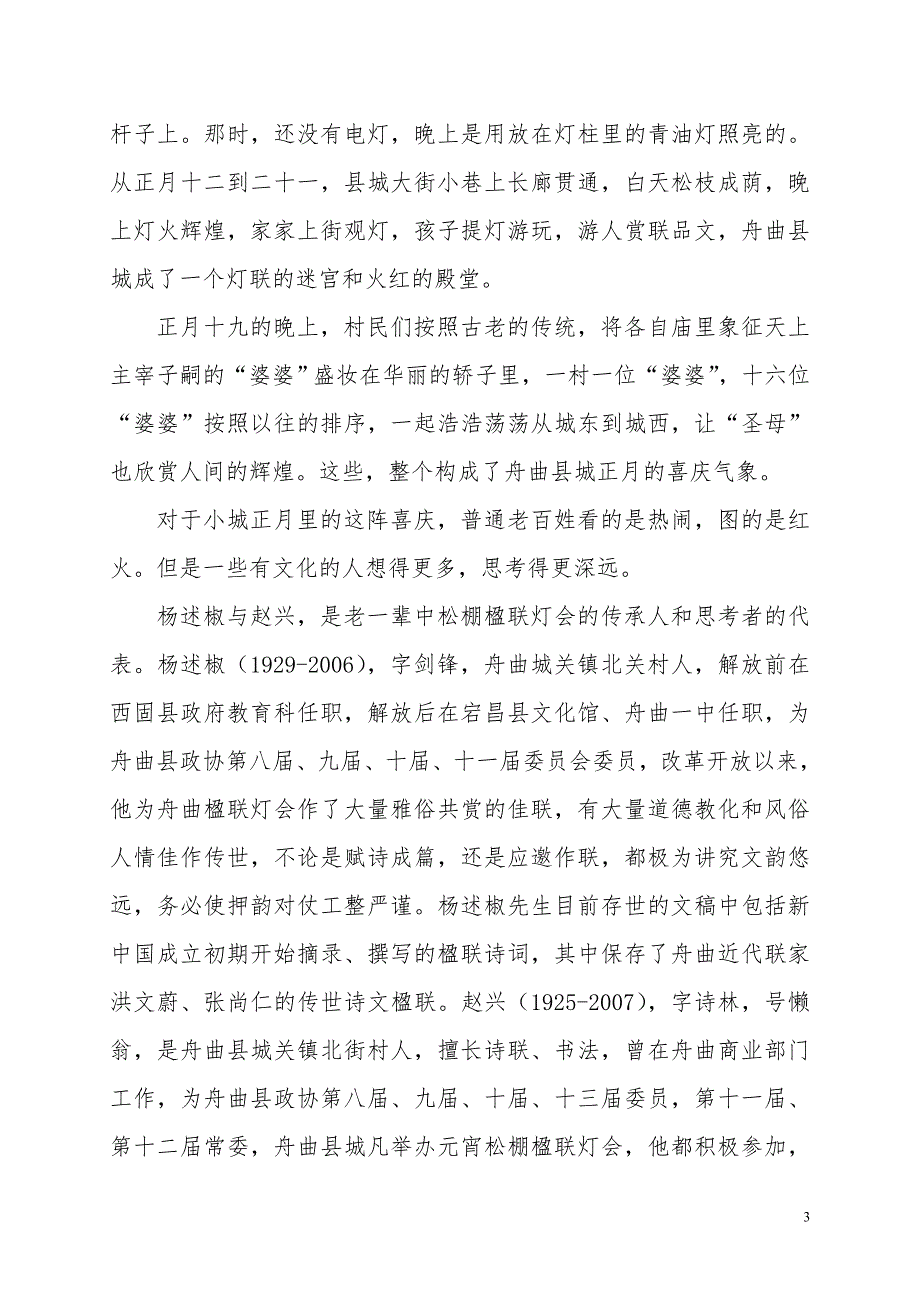 杆子上。那时，还没有电灯，晚上是用放在灯柱里的青油灯照亮的。
从正月十二到二十一，县城大街小巷上长廊贯通，白天松枝成荫，晚
上灯火辉煌，家家上街观灯，孩子提灯游玩，游人赏联品文，舟曲县
城成了一个灯联的迷宫和火红的殿堂。
正月十九的晚上，村民们按照古老的传统，将各自庙里象征天上
主宰子嗣的“婆婆”盛妆在华丽的轿子里，一村一位“婆婆”，十六位
“婆婆”按照以往的排序，一起浩浩荡荡从城东到城西，让“圣母”
也欣赏人间的辉煌。这些，整个构成了舟曲县城正月的喜庆气象。
对于小城正月里的这阵喜庆，普通老百姓看的是热闹，图的是红
火。但是一些有文化的人想得更多，思考得更深远。
杨述椒与赵兴，是老一辈中松棚楹联灯会的传承人和思考者的代
表。杨述椒（1929-2006），字剑锋，舟曲城关镇北关村人，解放前在
西固县政府教育科任职，解放后在宕昌县文化馆、舟曲一中任职，为
舟曲县政协第八届、九届、十届、十一届委员会委员，改革开放以来，
他为舟曲楹联灯会作了大量雅俗共赏的佳联，有大量道德教化和风俗
人情佳作传世，不论是赋诗成篇，还是应邀作联，都极为讲究文韵悠
远，务必使押韵对仗工整严谨。杨述椒先生目前存世的文稿中包括新
中国成立初期开始摘录、撰写的楹联诗词，其中保存了舟曲近代联家
洪文蔚、张尚仁的传世诗文楹联。赵兴（1925-2007），字诗林，号懒
翁，是舟曲县城关镇北街村人，擅长诗联、书法，曾在舟曲商业部门
工作，为舟曲县政协第八届、九届、十届、十三届委员，第十一届、
第十二届常委，舟曲县城凡举办元宵松棚楹联灯会，他都积极参加，
3